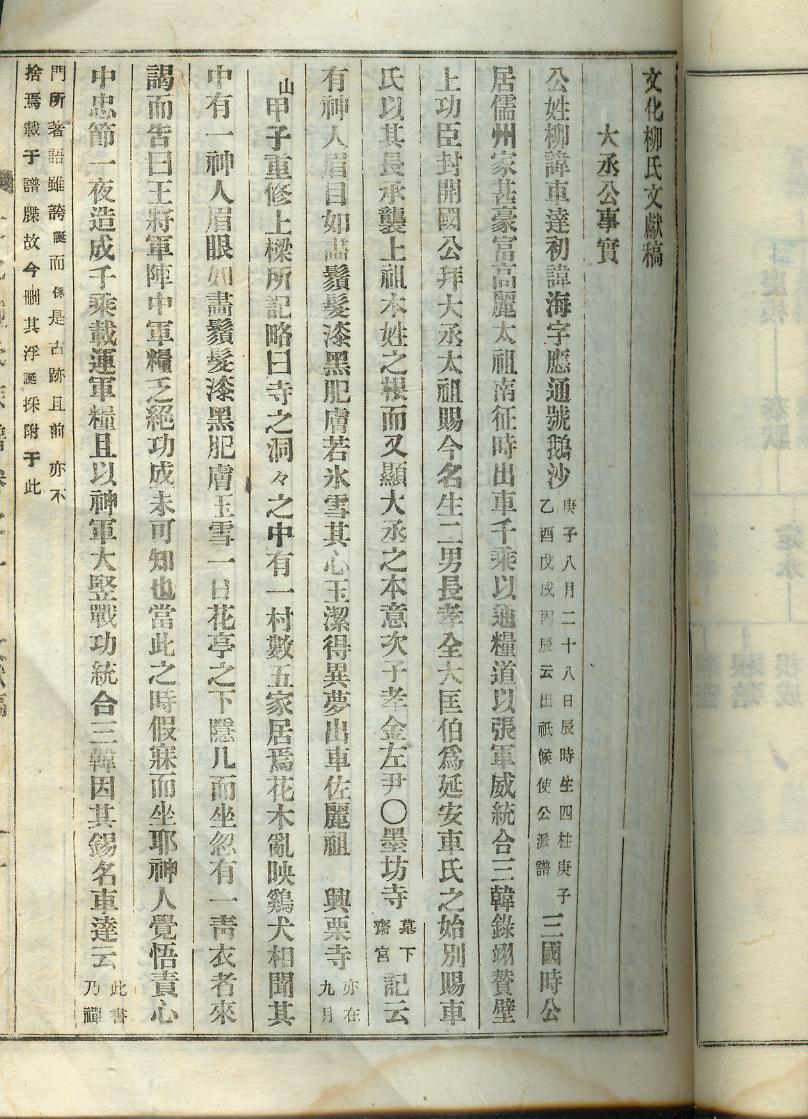 文化柳氏文獻稿
大丞公事實
公姓柳諱車達初諱海字應通號鵝沙
庚子八月二十八日辰時生四柱庚子
乙酉戊戌丙辰云出祇候使公派譜
三國時公
居儒州家甚豪富高麗太祖南征時出車千乘以通糧道以張軍威統合三韓錄翊贊壁
上功臣封開國公拜大丞太祖賜今名生二男長孝全大匡伯爲延安車氏之始別賜車
氏以其長承襲上祖本姓之根而又顯大丞之本意次子孝金左尹〇墨坊寺
墓下
齋宮
記云
有神人眉目如畵鬚髮漆黑肥膚若氷雪其心玉潔得異夢出車佐麗祖 興栗寺
亦在
九月
山
甲子重修上樑所記略曰寺之洞々之中有一村數五家居焉花木亂映鷄犬相聞其
中有一神人眉眼如畵鬚髮漆黑肥膚玉雪一日花亭之下隱几而坐忽有一靑衣者來
謁而告曰王將軍陣中軍糧乏絕功成未可知也當此之時假寐而坐耶神人覺悟責心
中忠節一夜造成千乘載運軍糧且以神軍大竪戰功統合三韓因其錫名車達云
此書
乃禪
門所著語雖誇誕而係是古跡且前亦不
捨焉載于譜牒故今刪其浮誕採附于此